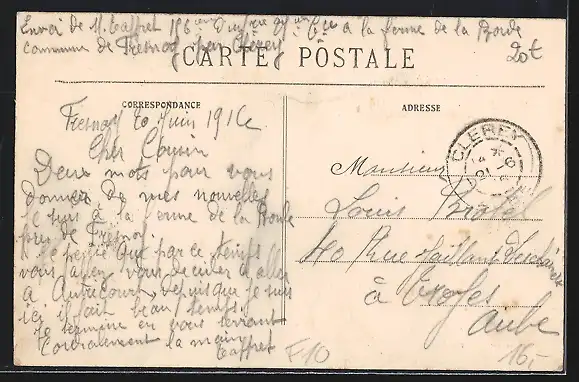 Envoi de M. Caffret 106
a la ferme de la Boule
commune de Fresnoy par Clérey
20t
CARTE POSTALE
CORRESPONDANCE
ADRESSE
CLEREY
Fresnoy 20 Juin 1916
Cher Cousin
Deux mots pour vous
donner de mes nouvelles
je suis a la ferme de la Boule
près de Fresnoy
je pense que par ce temps
vous avez vous décider a aller
a Autrecourt, depuis que je suis
ici il fait beau temps.
je termine en vous serrant
Cordialement la main
Caffret
Monsieur
Louis
40 Rue
à Troyes
Aube
F10
16,-